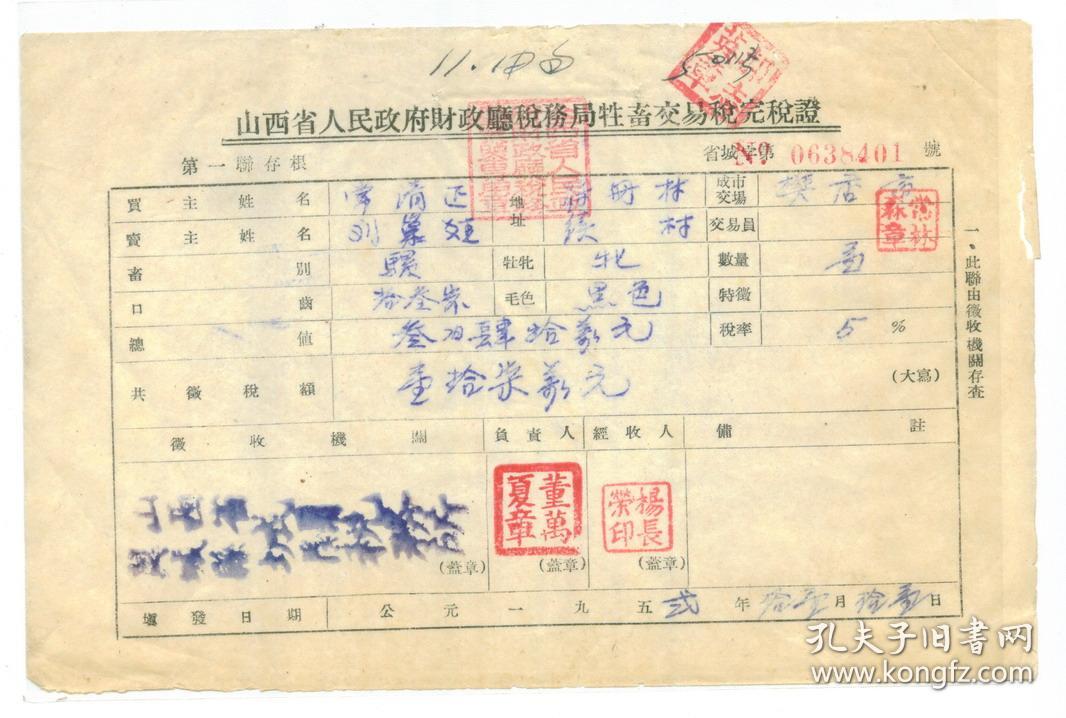 11.12
山西省人民政府財政廳稅務局牲畜交易稅完稅證
第一聯存根 省城字第 № 0638401 號
買主姓名 常清正 地址 村 成市交場 樊店
賣主姓名 村 交易員 常林森章
畜別 騾 牡牝 牝 數量 壹
口齒 拾叁歲 毛色 黑色 特徵
總值 叁百肆拾萬元 稅率 5 %
共徵稅額 壹拾柒萬元 (大寫)
徵收機關 負責人 經收人 備註
山西省 稅務所
董萬夏章
楊長榮印
(蓋章) (蓋章) (蓋章)
填發日期 公元一九五弍年拾壹月拾壹日
一、此聯由徵收機關存查
孔夫子旧書网
www.kongfz.com